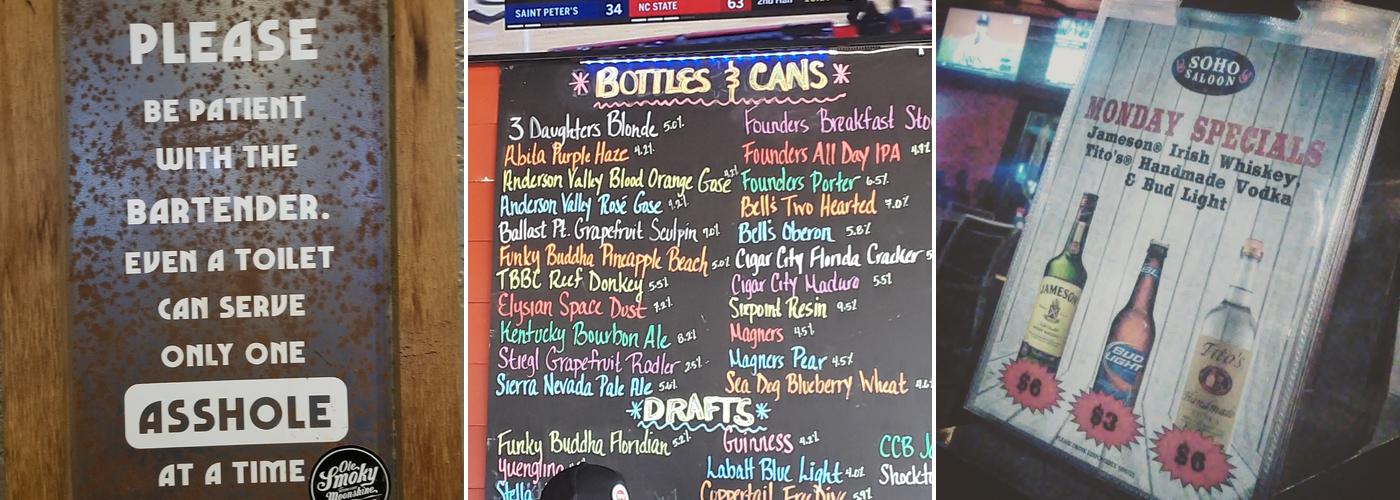 PLEASE
BE PATIENT
WITH THE
BARTENDER.
EVEN A TOILET
CAN SERVE
ONLY ONE
ASSHOLE
AT A TIME
Ole
Smoky
Moonshine
SAINT PETER'S 34 NC STATE 63 2nd Half
BOTTLES & CANS
3 Daughters Blonde 5.0%
Abita Purple Haze 4.2%
Anderson Valley Blood Orange Gose 4.2%
Anderson Valley Rosé Gose 4.2%
Ballast Pt. Grapefruit Sculpin 7.0%
Funky Buddha Pineapple Beach 5.0%
TBBC Reef Donkey 5.5%
Elysian Space Dust 7.2%
Kentucky Bourbon Ale 8.2%
Stiegl Grapefruit Radler 2.5%
Sierra Nevada Pale Ale 5.6%
Founders Breakfast Sto
Founders All Day IPA
Founders Porter 6.5%
Bell's Two Hearted 7.0%
Bell's Oberon 5.8%
Cigar City Florida Cracker 5
Cigar City Maduro 5.5%
Sixpoint Resin 9.5%
Magners 4.5%
Magners Pear 4.5%
Sea Dog Blueberry Wheat
DRAFTS
Funky Buddha Floridian 5.2%
Yuengling
Stella
Guinness 4.2%
Labatt Blue Light 4.0%
Coppertail Free Dive 5.9%
CCB Ja
Shockt
SOHO
SALOON
MONDAY SPECIALS
Jameson® Irish Whiskey,
Tito's® Handmade Vodka
& Bud Light
JAMESON
BL
BUD
LIGHT
Tito's
Handmade
$6
$3
$6